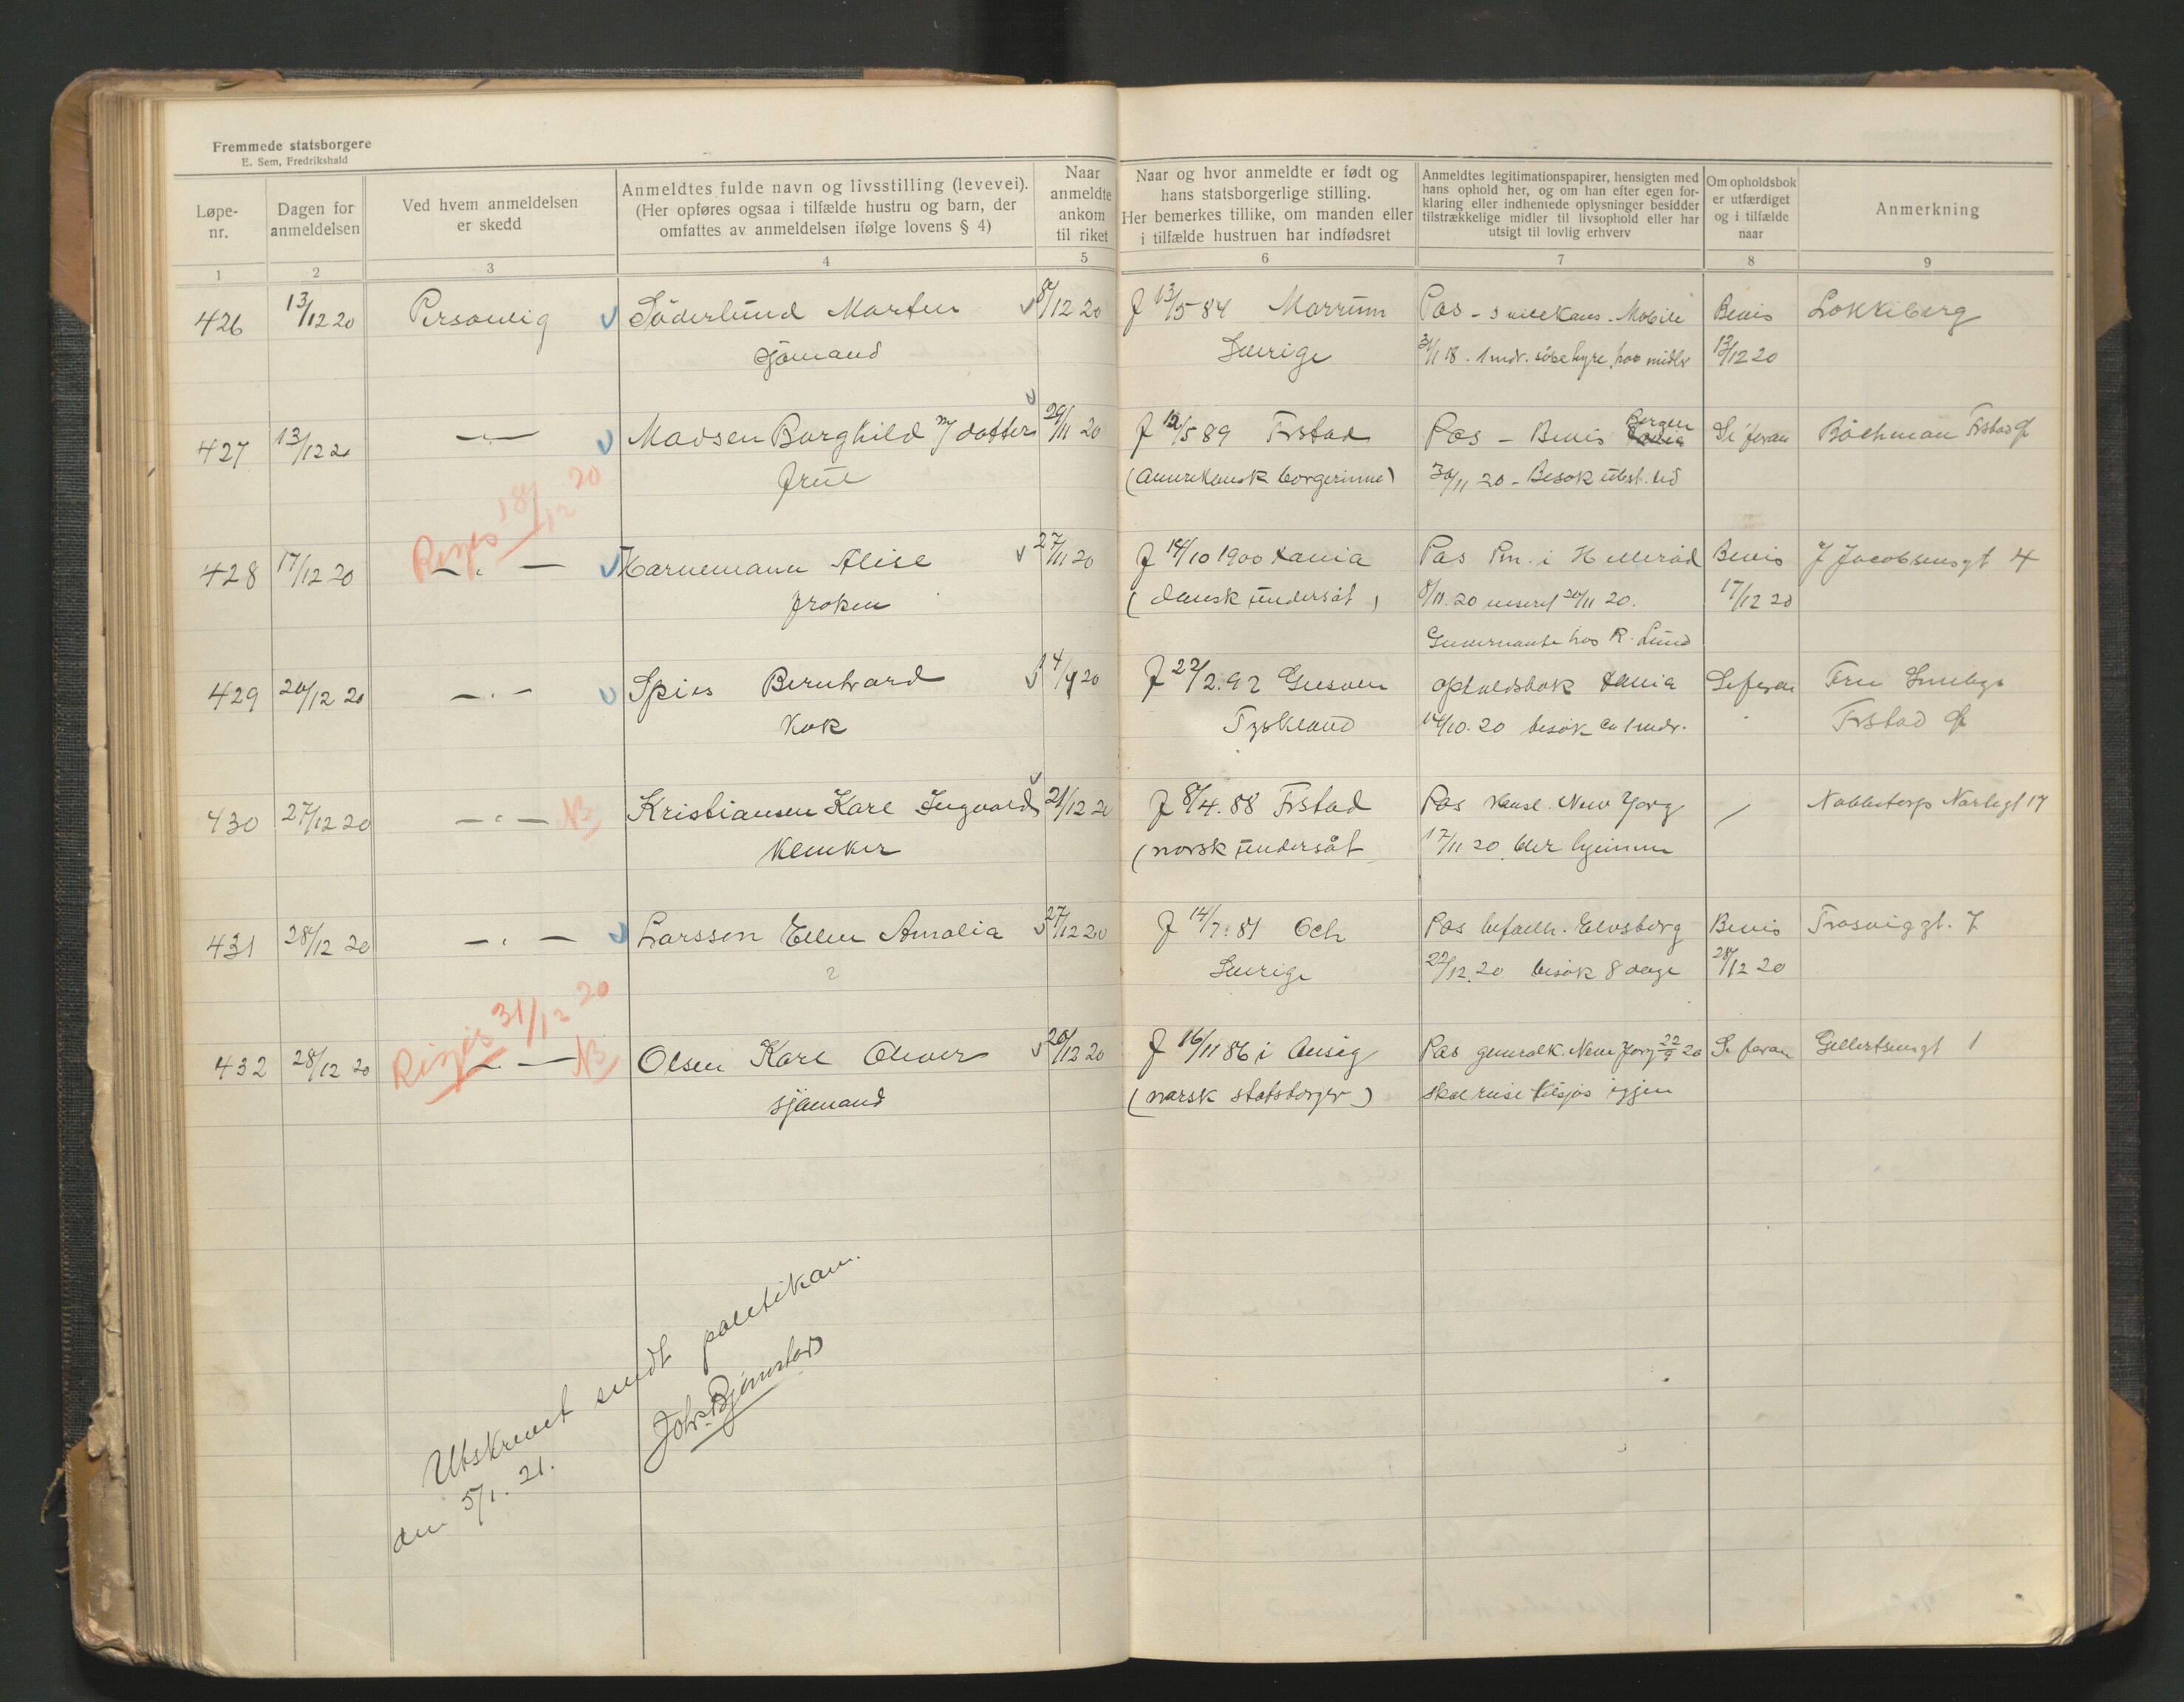 Fremmede statsborgere
E. Sem, Fredrikshald
Løpe-
nr.
Dagen for
anmeldelsen
Ved hvem anmeldelsen
er skedd
Anmeldtes fulde navn og livsstilling (levevei).
(Her opføres ogsaa i tilfælde hustru og barn, der
omfattes av anmeldelsen ifølge lovens § 4)
Naar
anmeldte
ankom
til riket
Naar og hvor anmeldte er født og
hans statsborgerlige stilling.
Her bemerkes tillike, om manden eller
i tilfælde hustruen har indfødsret
Anmeldtes legitimationspapirer, hensigten med
hans ophold her, og om han efter egen for-
klaring eller indhentede oplysninger besidder
tilstrækkelige midler til livsophold eller har
utsigt til lovlig erhverv
Om opholdsbok
er utfærdiget
og i tilfælde
naar
Anmerkning
1 2 3 4 5 6 7 8 9
426 13/12 20 Personlig Söderlund Morten 8/12 20 f 13/5 84 Marrum Pas - Mobile Bevis Lokkeberg
sjömand Sverige 1 mdr. söke hyre, har midler 13/12 20
427 13/12 20 — " — Madsen Borghild m/ datter 29/11 20 f 12/5 89 Frstad Pas - Bevis Bergen Se foran Frstad
frue (Amerikansk borgerinne) 30/11 20 - Besøk ubst. tid
Rejes 18/12 20
428 17/12 20 — " — Alise 27/11 20 f 14/10 1900 Xania Pas Pm. i Hilleröd Bevis J Jacobsensgt 4
fröken (dansk undersåt) 8/11. 20 20/11 20. 17/12 20
Guvernante hos R. Lund
429 20/12 20 — " — Spies Bernhard 4/9 20 f 22/2. 92 opholdsbok Xania Se foran Fru
Kok Tyskland 14/10. 20 besök ca 1 mdr. Frstad
430 27/12 20 — " — NB Kristiansen Karl Ingvald 21/12 20 f 8/4. 88 Frstad Pas Kausl. New York / 17
Klinker (norsk undersåt 17/11 20 blir hjemme
431 28/12 20 — " — Larsson Ellen Amalia 27/12 20 f 14/7. 81 Och Pas Elvsborg Bevis Trosviggt. 7
? Sverige 22/12. 20 besök 8 dage 28/12 20
Rejes 31/12 20
432 28/12 20 — " — NB Olsen Karl Oliver 20/12 20 f 16/11 86 i Onsög Pas generalk. New York 22/9 20 Se foran Gellertsengt 1
sjömand (norsk statsborger) skal reise tilsjös igjen
Utskrevet sendt politikam.
den 5/1. 21.
Johs. Bjørnstad